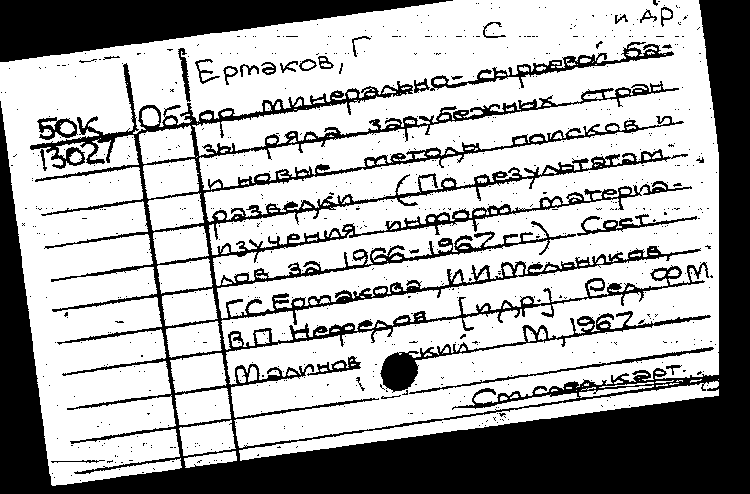 Ермаков, Г С и др.
50К
13027
Обзор минерально-сырьевой ба-
зы ряда зарубежных стран
и новые методы поисков и
разведки. (По результатам
изучения информ. материа-
лов за 1966-1967 гг.) Сост.
Г.С.Ермакова, И.И.Мельников,
В.П. Нефедов [и др.]. Ред. Ф.М.
Малиновский М., 1967.
См. след. карт.